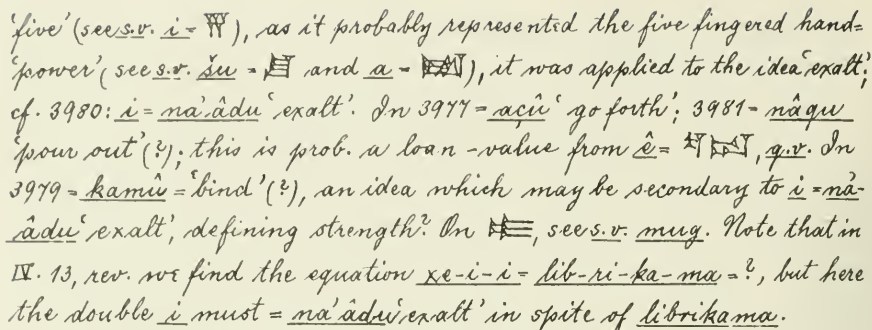 'five' (see s.v. i = 𒐊), as it probably represented the five fingered hand=
'power' (see s.v. šu = 𒋗 and a = ), it was applied to the idea 'exalt';
cf. 3980: i = na'âdu 'exalt'. In 3977 = açû 'go forth'; 3981 = nâqu
'pour out' (?); this is prob. a loan-value from ê = , q.v. In
3979 = kamû = 'bind' (?), an idea which may be secondary to i = na'-
âdu 'exalt', defining strength? On , see s.v. mug. Note that in
IV. 13, rev. we find the equation xe-i-i = lib-ri-ka-ma = ?, but here
the double i must = na'âdu 'exalt' in spite of librikama.